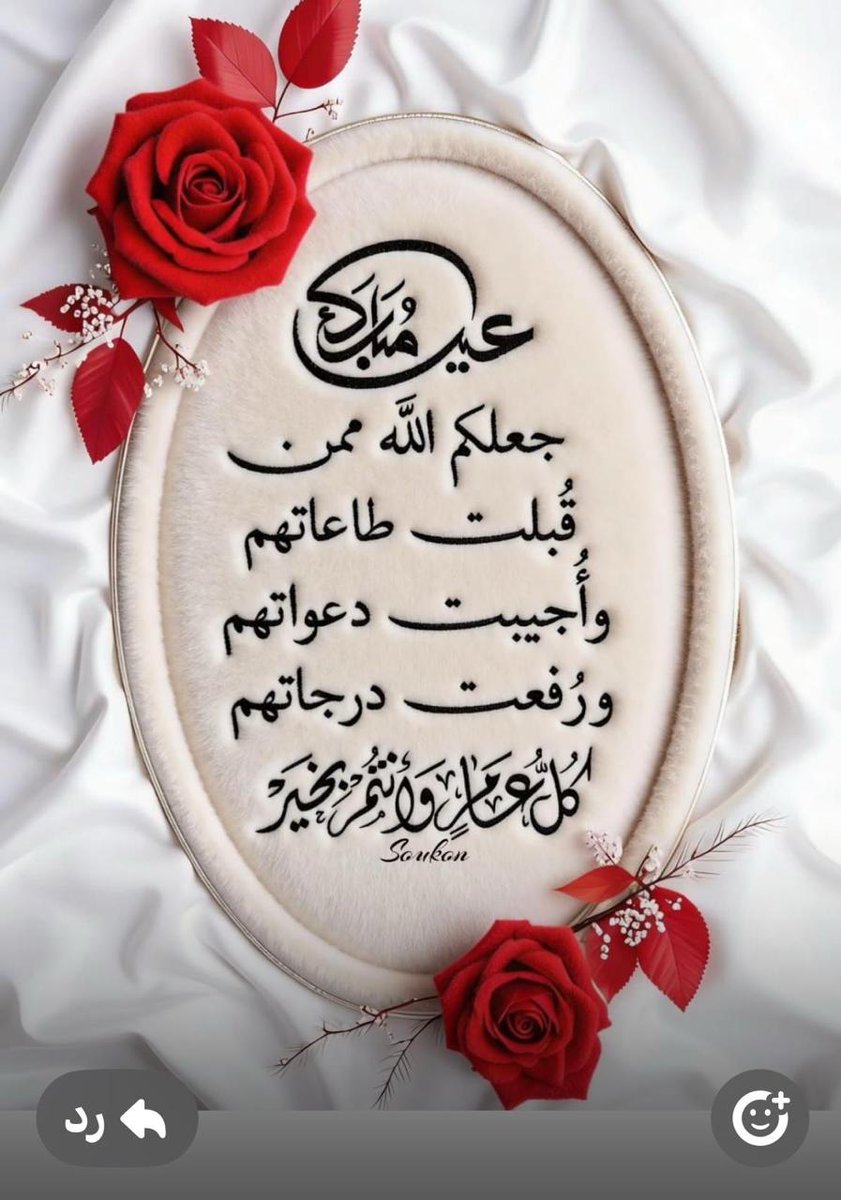 عيد مُبَارَك
جعلكم اللَّه ممن
قُبلت طاعاتهم
وأُجيبت دعواتهم
ورُفعت درجاتهم
كُلُّ عَامٍ وَأَنْتُمْ بِخَيْرْ
Soukon
رد